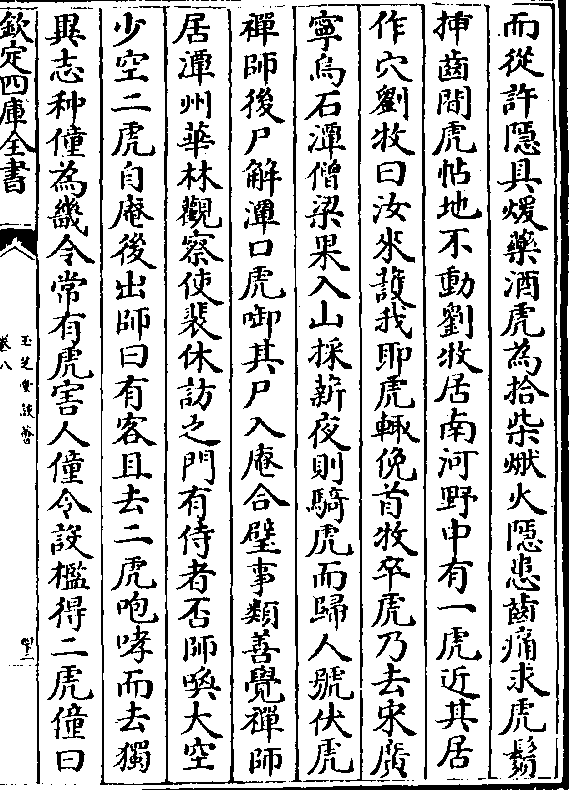 而從許隱具煖藥酒虎為拾柴燃火隱患齒痛求虎鬚
揷齒間虎帖地不動劉牧居南河野中有一虎近其居
作穴劉牧曰汝來護我耶虎輙俛首牧卒虎乃去宋廣
寧烏石潭僧梁果入山採薪夜則騎虎而歸人號伏虎
禪師後尸解潭口虎啣其尸入庵合壁事類善覺禪師
居潭州華林觀察使裴休訪之門有侍者否師喚大空
少空二虎自庵後出師曰有客且去二虎咆哮而去獨
異志种僮為畿令常有虎害人僮令設檻得二虎僮曰
欽定四庫全書
玉芝堂談薈
卷八